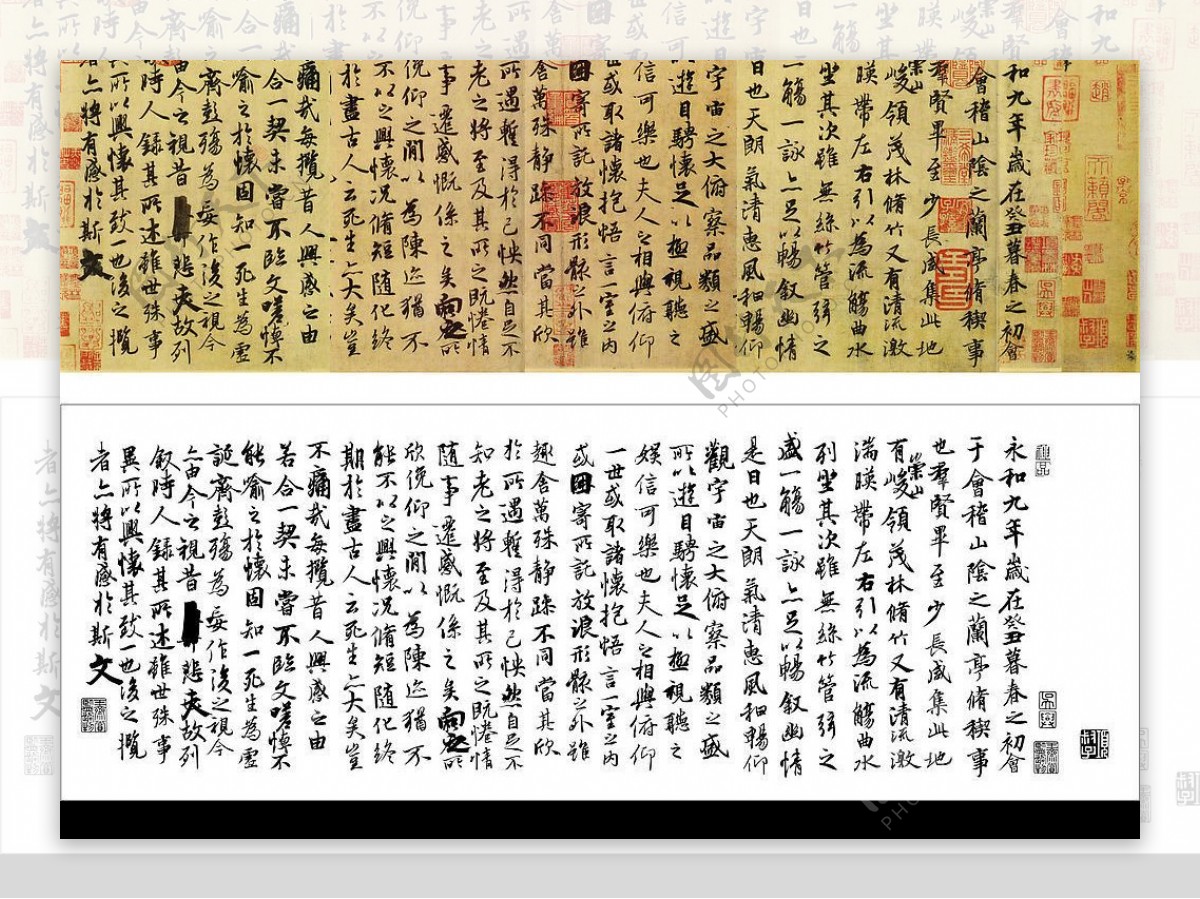 和九年歲在癸丑暮春之初會
會稽山陰之蘭亭脩稧事
羣賢畢至少長咸集此地
崇山峻領茂林脩竹又有清流激
暎帶左右引以為流觴曲水
坐其次雖無絲竹管弦之
一觴一詠亦足以暢敘幽情
日也天朗氣清惠風和暢仰
宇宙之大俯察品類之盛
以遊目騁懷足以極視聽之
信可樂也夫人之相與俯仰
世或取諸懷抱悟言一室之內
因寄所託放浪形骸之外雖
舍萬殊靜躁不同當其欣
所遇蹔得於己怏然自足不
老之將至及其所之既惓情
事遷感慨係之矣向之所
仰之閒以為陳迹猶不
不以之興懷況脩短隨化終
於盡古人云死生亦大矣豈
痛哉每攬昔人興感之由
合一契未嘗不臨文嗟悼不
喻之於懷固知一死生為虛
齊彭殤為妄作後之視今
由今之視昔悲夫故列
時人錄其所述雖世殊事
所以興懷其致一也後之攬
者亦將有感於斯文
永和九年歲在癸丑暮春之初會
于會稽山陰之蘭亭脩稧事
也羣賢畢至少長咸集此地
有崇山峻領茂林脩竹又有清流激
湍暎帶左右引以為流觴曲水
列坐其次雖無絲竹管弦之
盛一觴一詠亦足以暢敘幽情
是日也天朗氣清惠風和暢仰
觀宇宙之大俯察品類之盛
所以遊目騁懷足以極視聽之
娛信可樂也夫人之相與俯仰
一世或取諸懷抱悟言一室之內
或因寄所託放浪形骸之外雖
趣舍萬殊靜躁不同當其欣
於所遇蹔得於己怏然自足不
知老之將至及其所之既惓情
隨事遷感慨係之矣向之所
欣俛仰之閒以為陳迹猶不
能不以之興懷況脩短隨化終
期於盡古人云死生亦大矣豈
不痛哉每攬昔人興感之由
若合一契未嘗不臨文嗟悼不
能喻之於懷固知一死生為虛
誕齊彭殤為妄作後之視今
亦由今之視昔悲夫故列
敘時人錄其所述雖世殊事
異所以興懷其致一也後之攬
者亦將有感於斯文